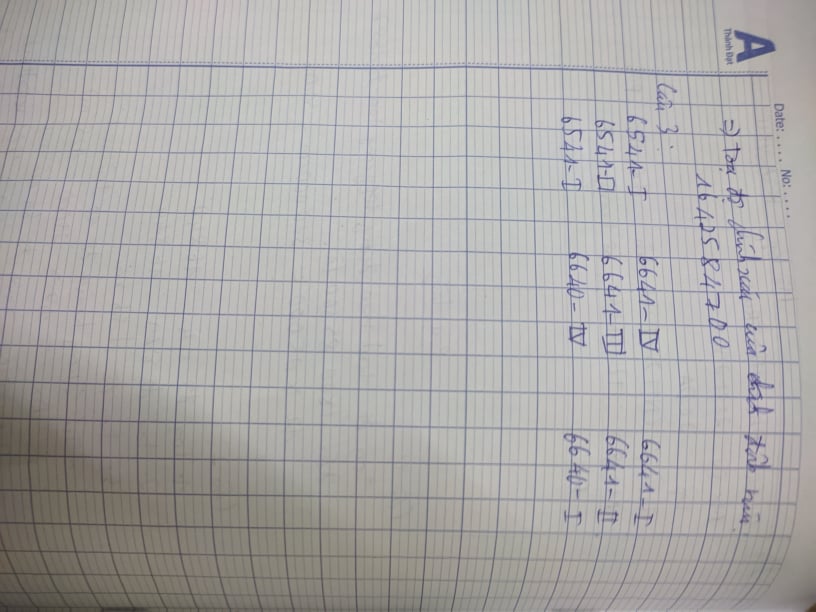 A
Thành Đạt
Date: .... No: ....
=> Toạ độ chính xác của đỉnh
16425 84700
Câu 3:
6541-I 6641-IV 6641-I
6541-II 6641-III 6641-II
6541-I 6640-IV 6640-I